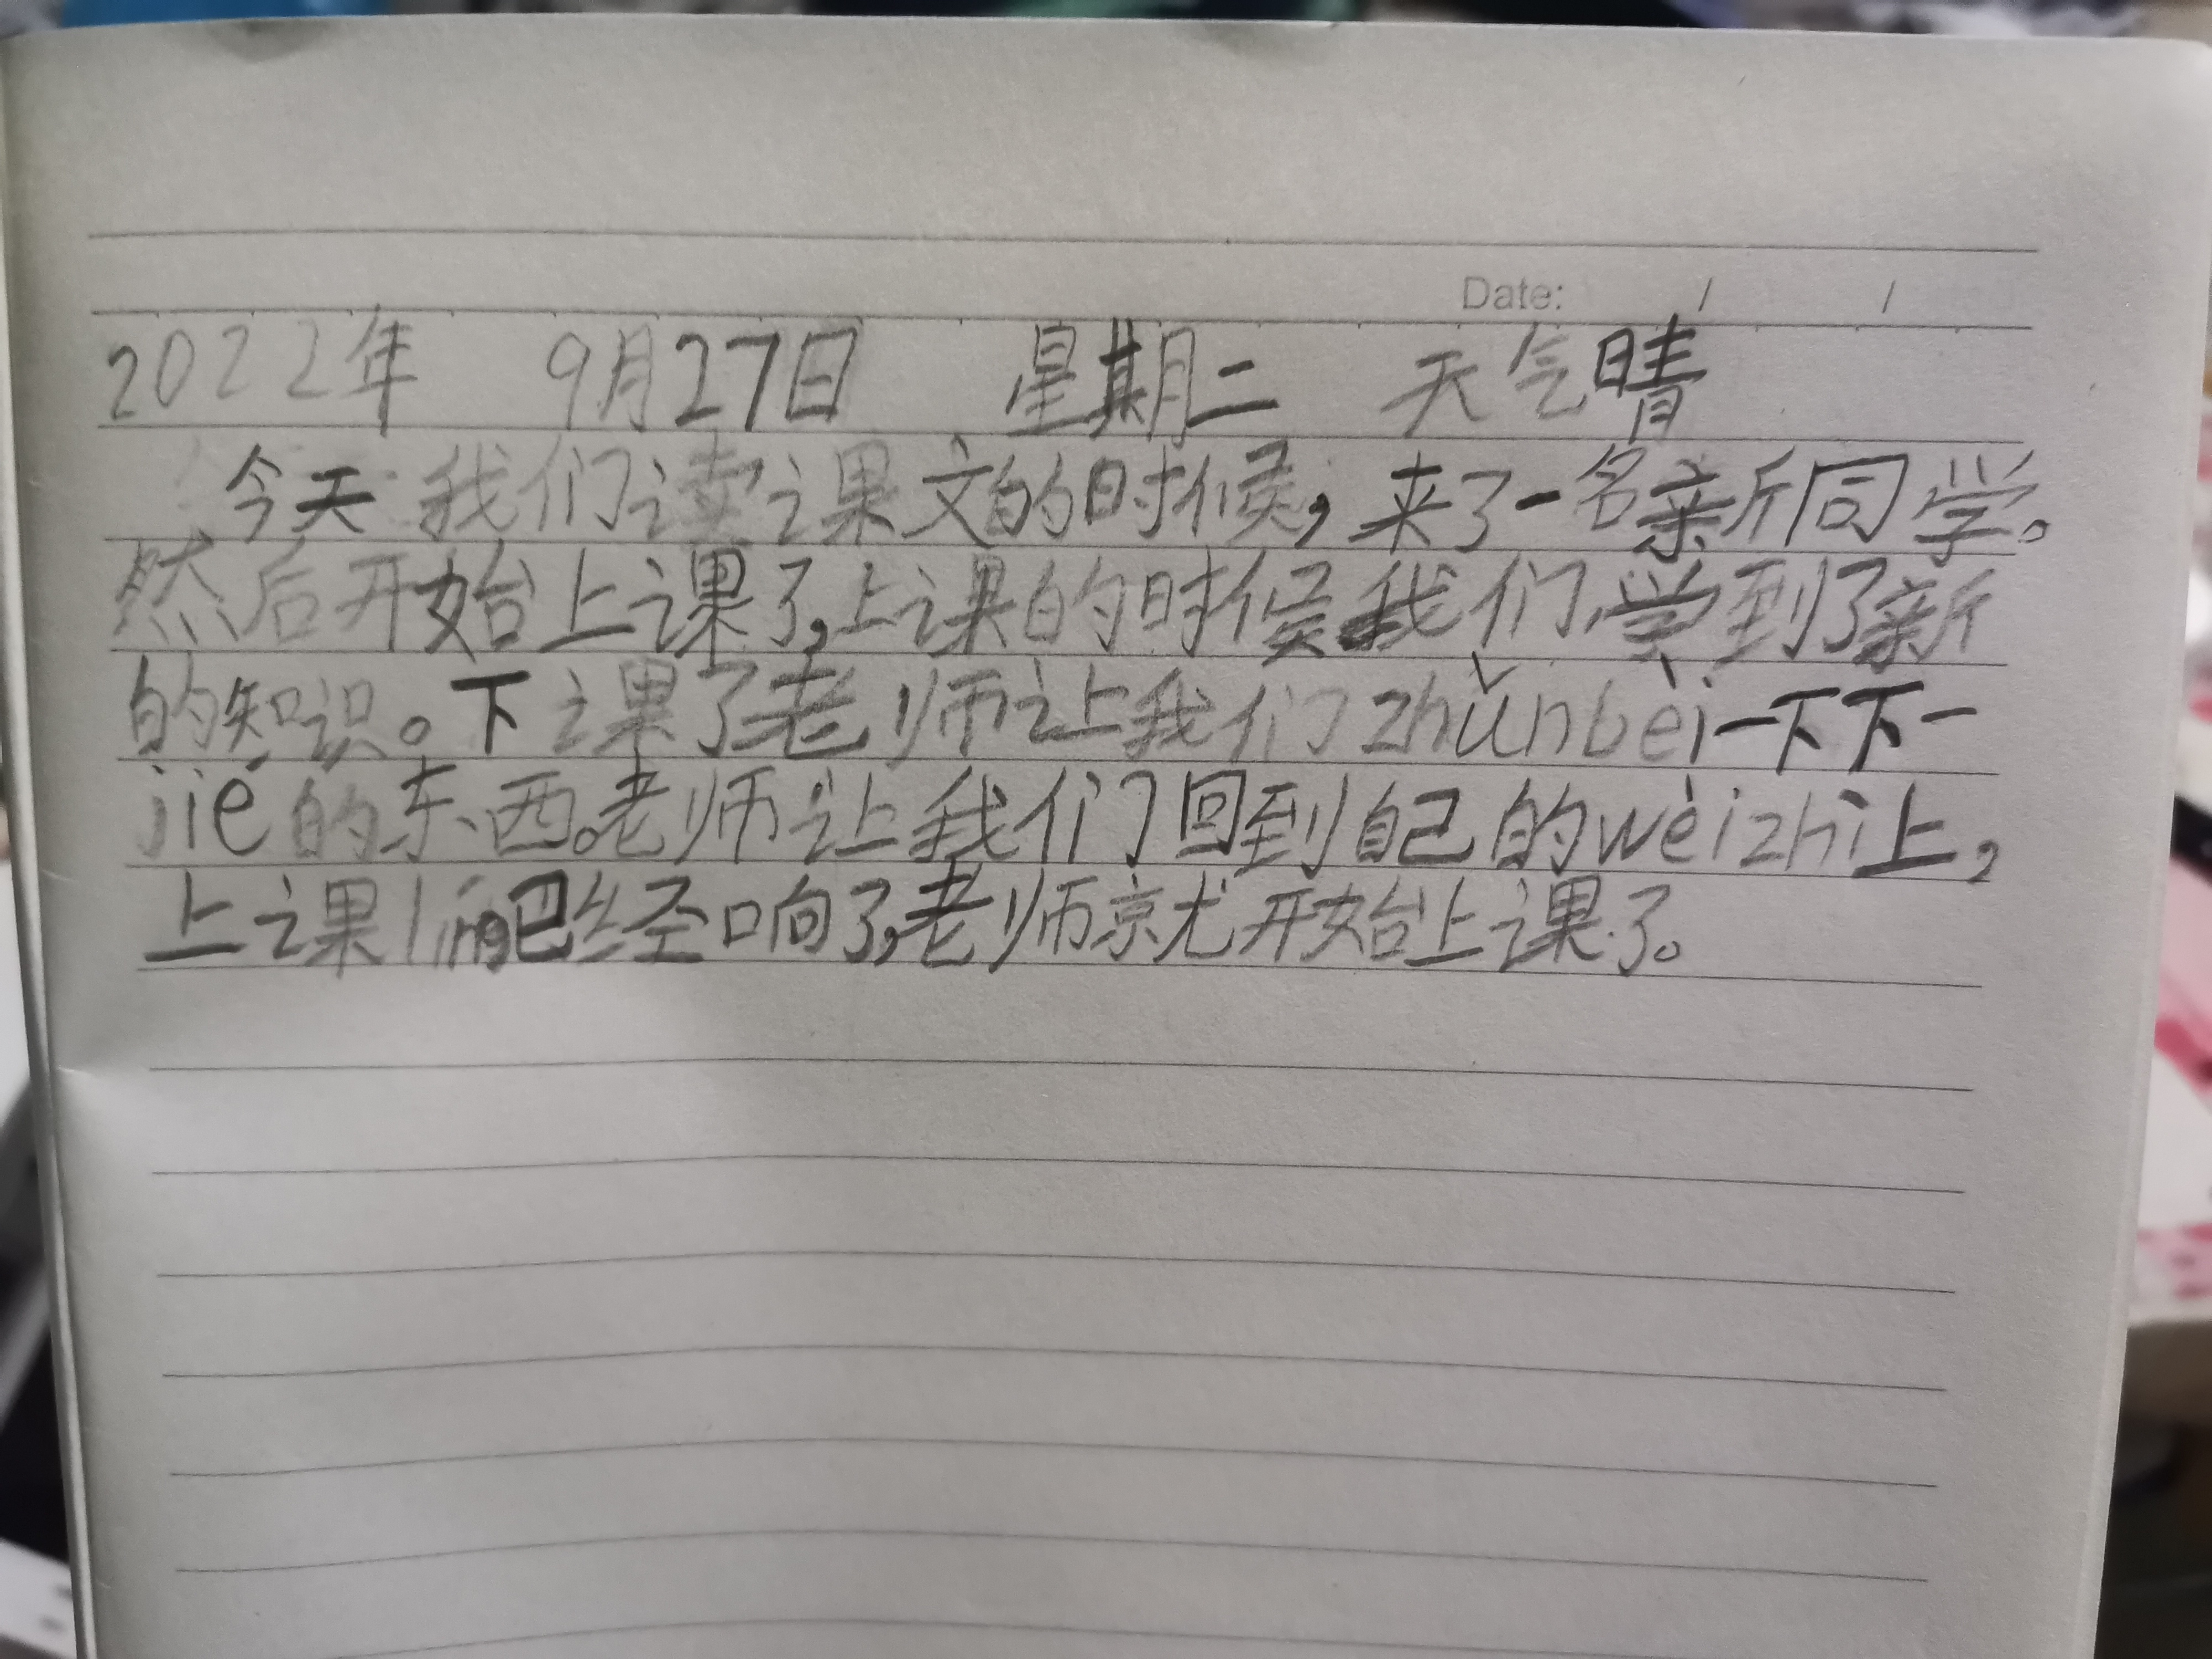 Date: / /
2022年 9月27日 星期二 天气晴
今天我们读课文的时候，来了一名新同学。
然后开始上课了，上课的时候我们学到了新
的知识。下课了老师让我们zhǔnbèi一下下一
jié的东西。老师让我们回到自己的wèizhi上，
上课líng已经响了，老师就开始上课了。